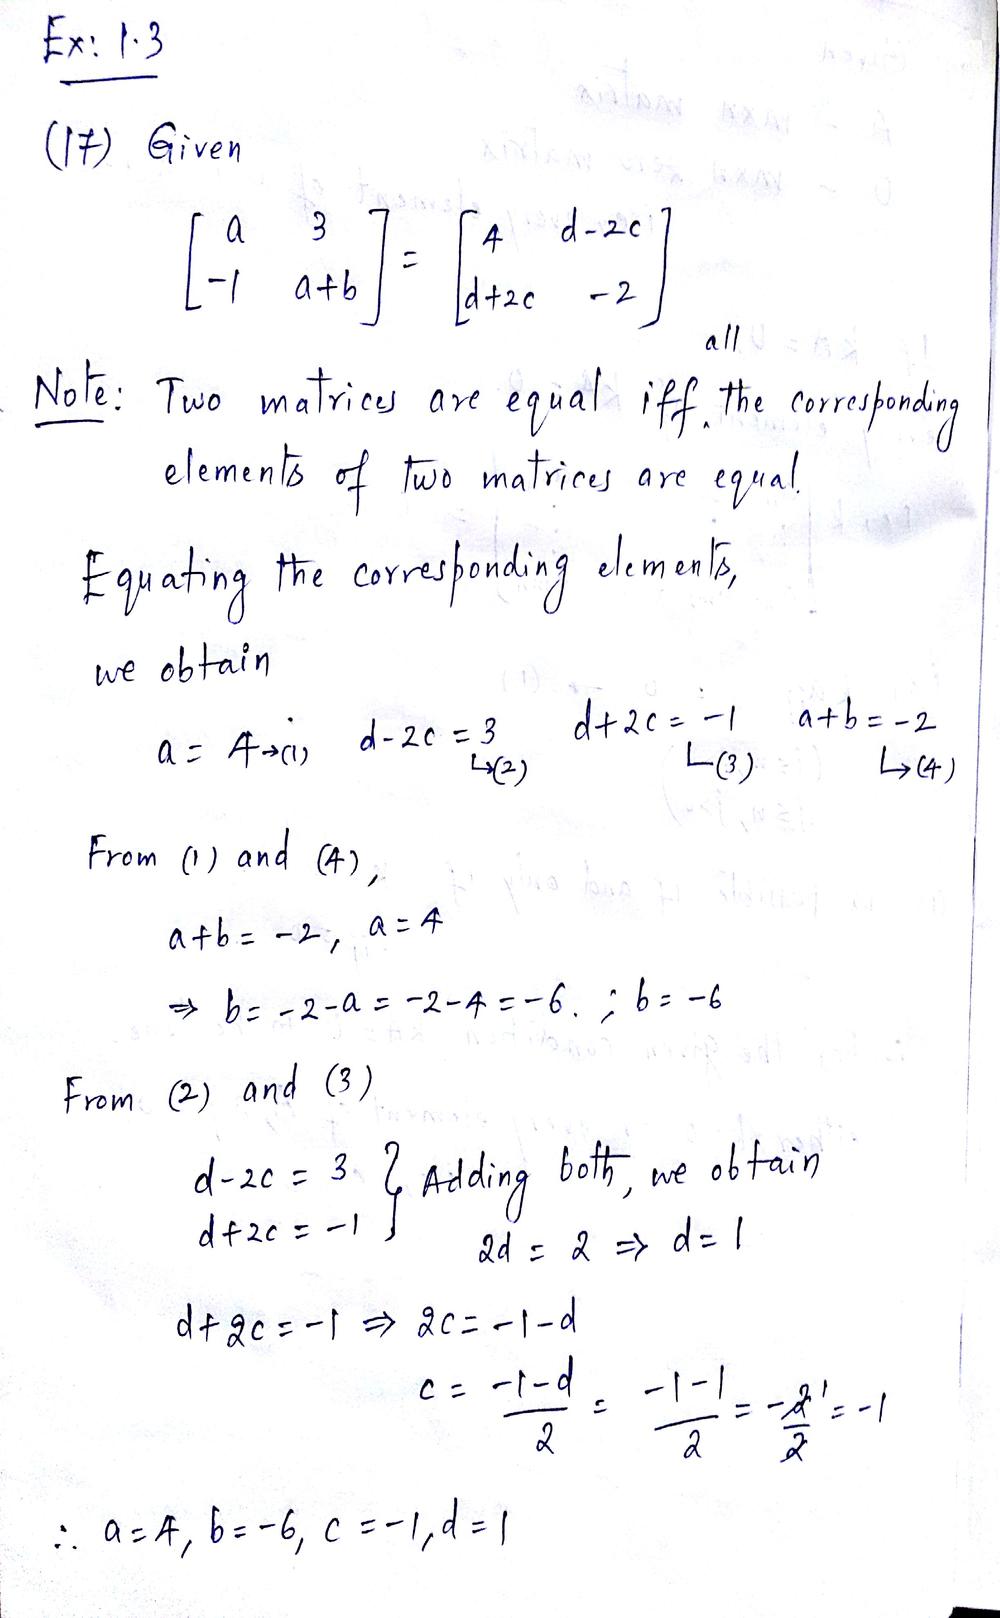 Ex: 1.3
(17) Given
[a 3
-1 a+b] = [4 d-2c
d+2c -2]
Note: Two matrices are equal iff all the corresponding
elements of two matrices are equal.
Equating the corresponding elements,
we obtain
a = 4 →(1) d-2c = 3 ↳(2) d+2c = -1 ↳(3) a+b = -2 ↳(4)
From (1) and (4),
a+b = -2, a = 4
⇒ b = -2-a = -2-4 = -6. ; b = -6
From (2) and (3)
d-2c = 3
d+2c = -1 } Adding both, we obtain
2d = 2 ⇒ d = 1
d+2c = -1 ⇒ 2c = -1-d
c = (-1-d)/2 = (-1-1)/2 = -2/2 1 = -1
∴ a=4, b=-6, c=-1, d=1